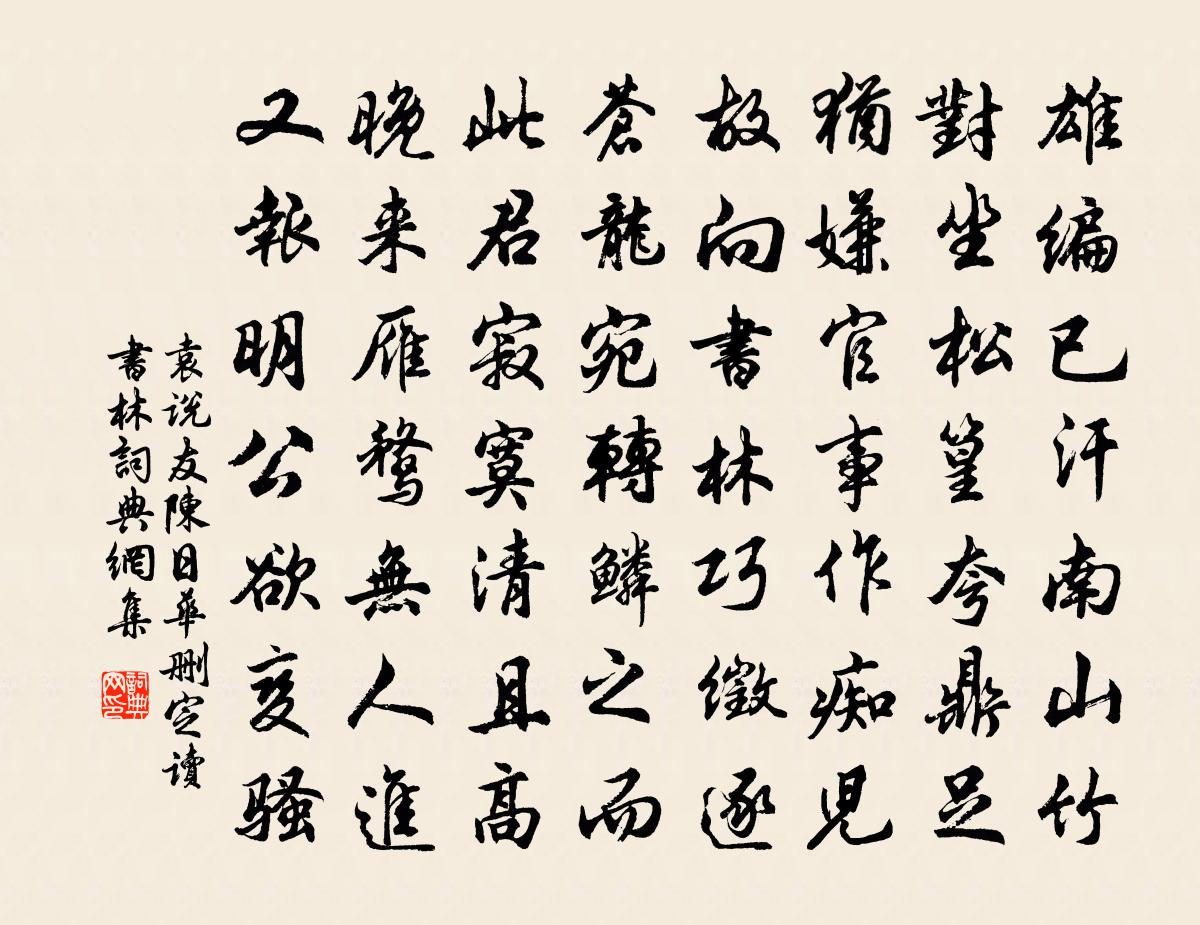 雄編已汗南山竹
對坐松篁夸鼎足
猶嫌官事作痴兒
故向書林巧徵逐
蒼龍宛轉鱗之而
此君寂寞清且高
晚来雁鶩無人進
又報明公欲变騷
袁说友陳日華删定读
書林詞典網集
詞典网印